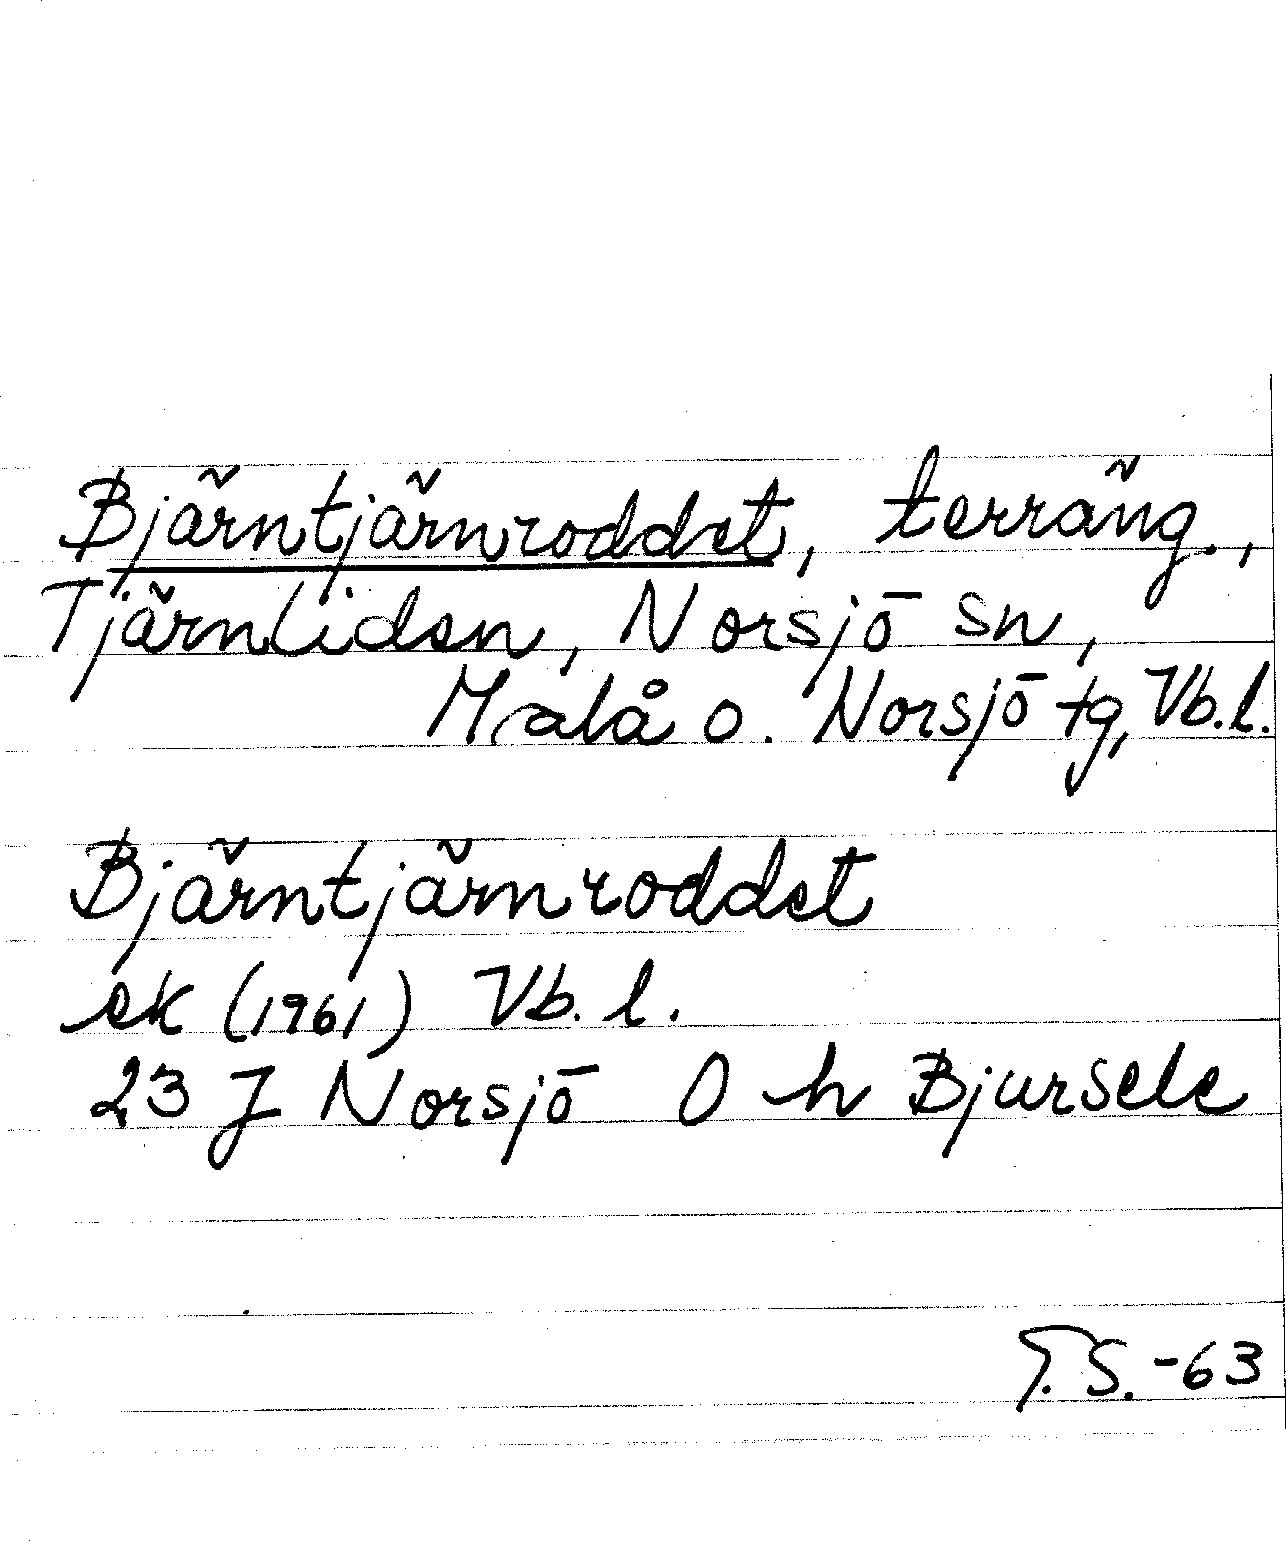 Bjärntjärnroddet, terräng.,
Tjärnliden, Norsjö sn,
Malå o. Norsjö tg, Vb.l.
Bjärntjärnroddet
ek (1961) Vb. l.
23 J Norsjö O h Bjursele
T.S. -63